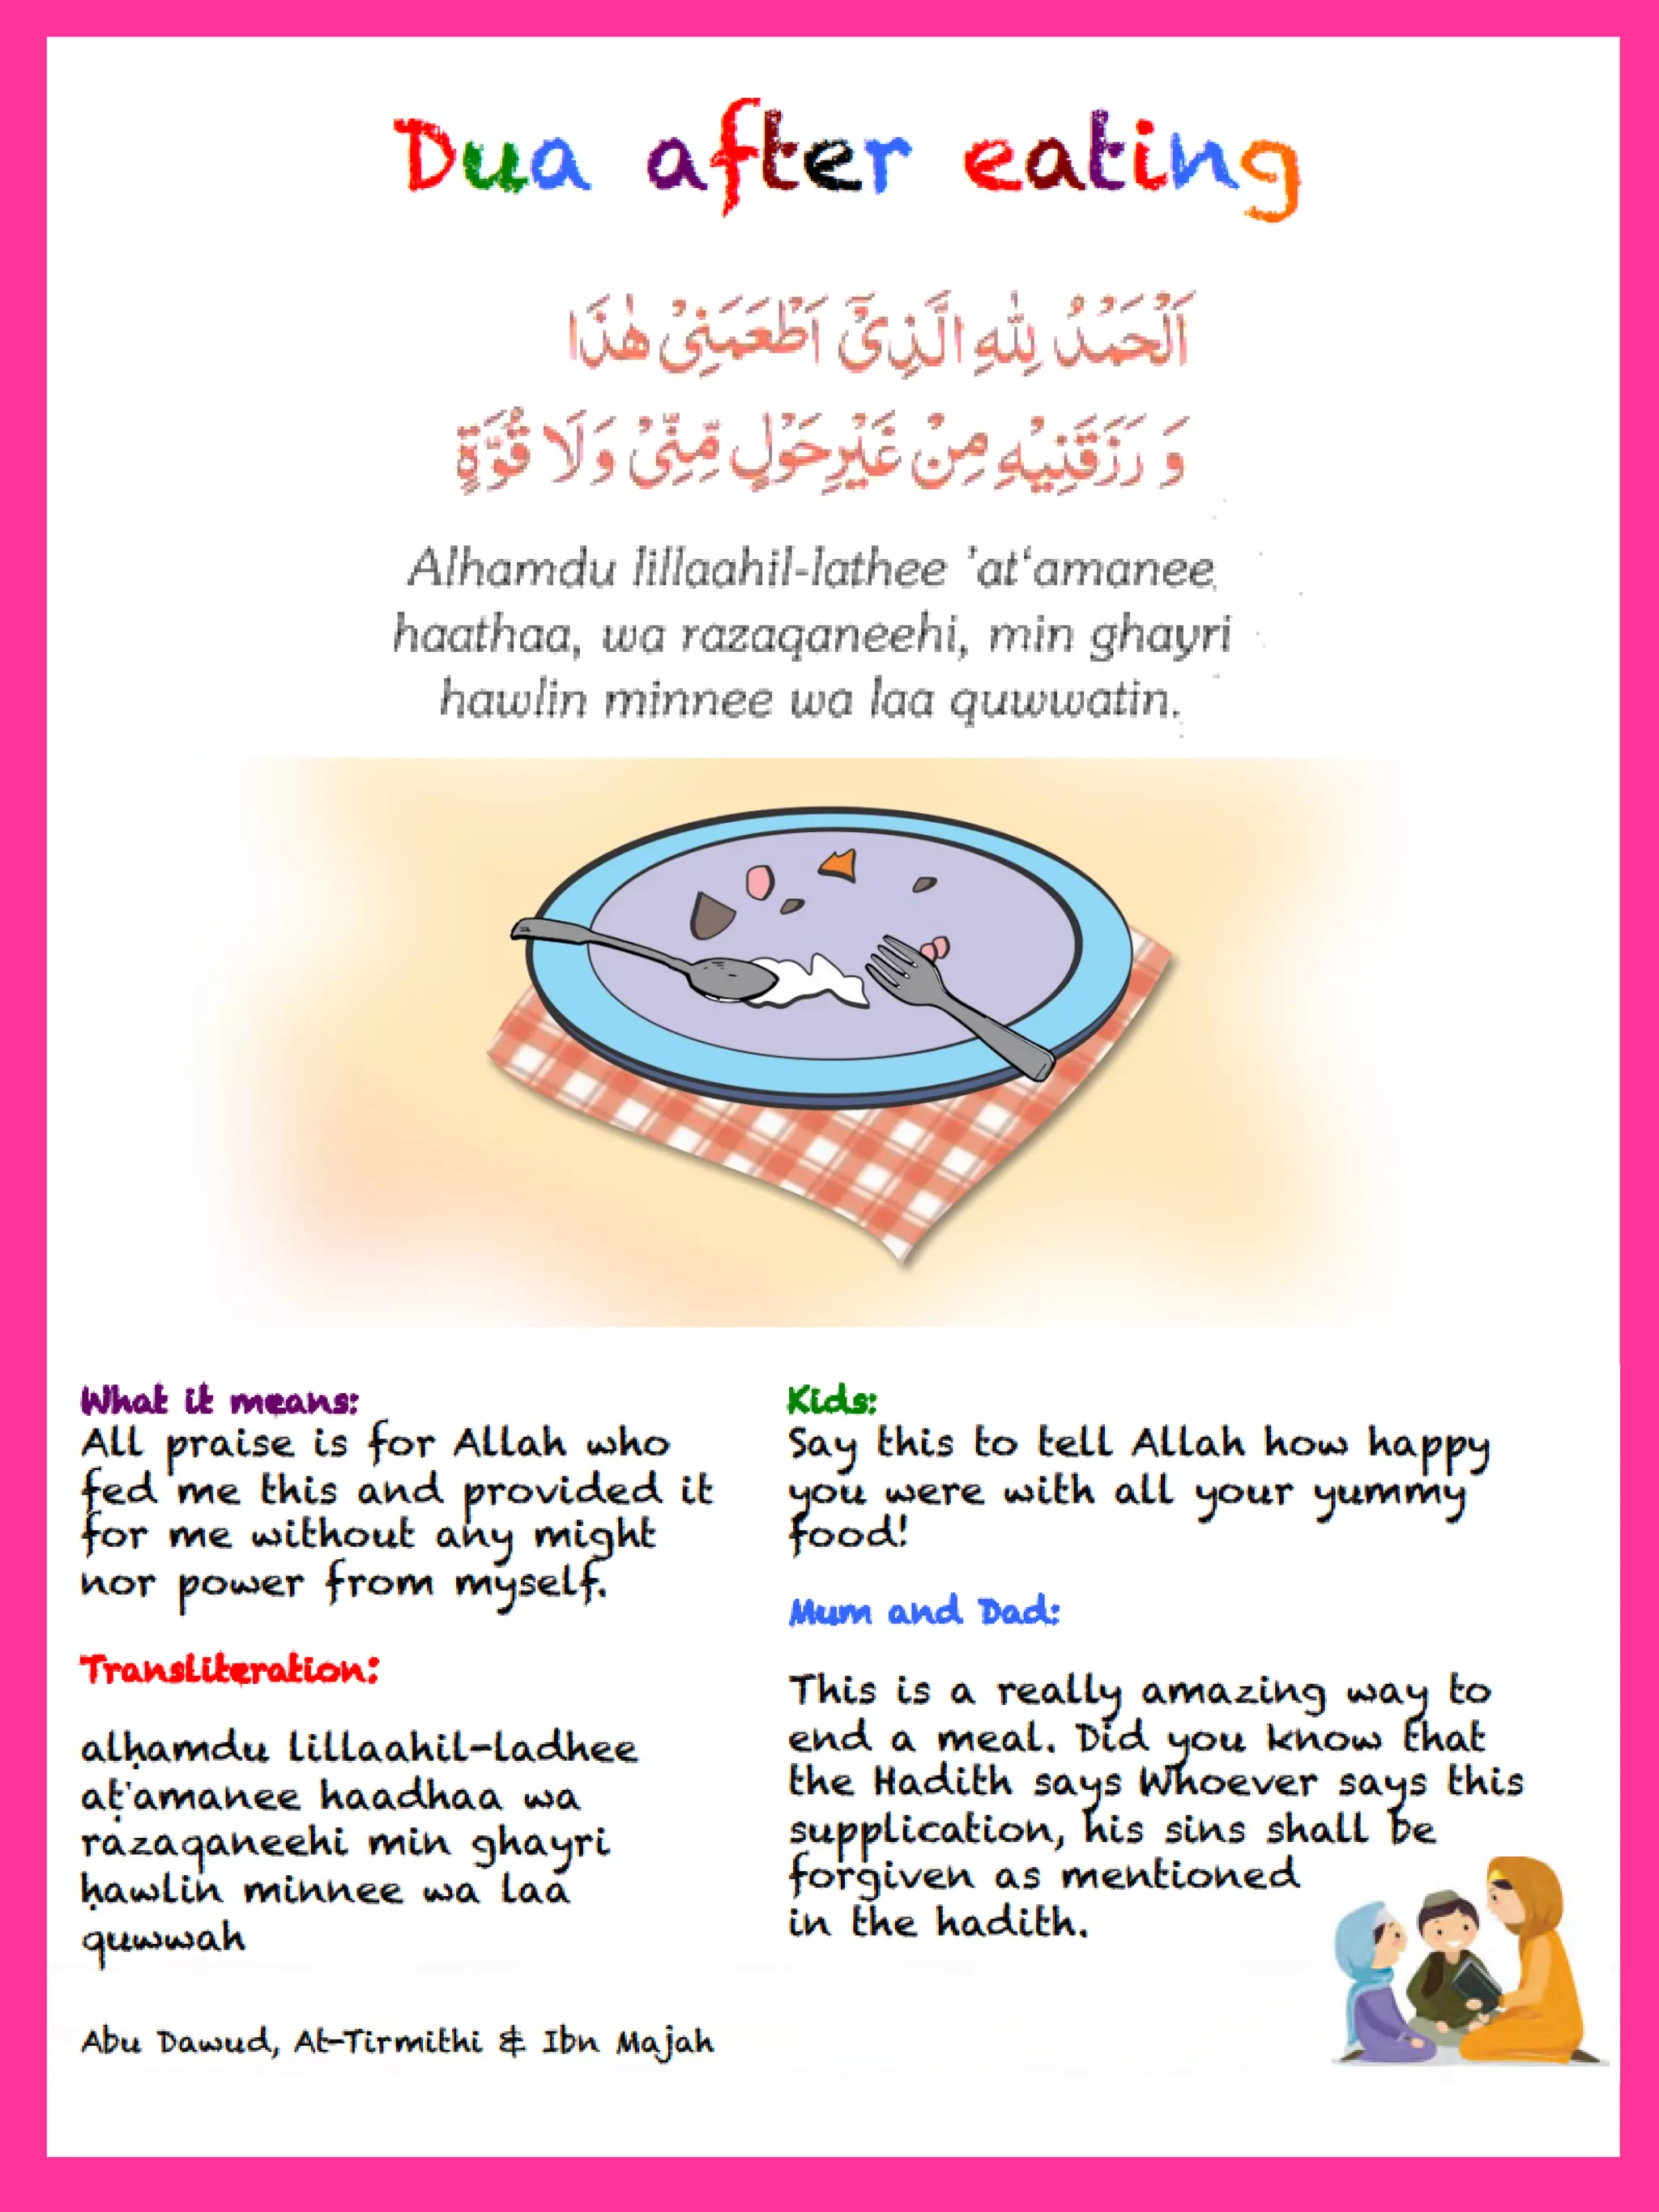 Dua after eating
اَلْحَمْدُ لِلّٰهِ الَّذِىْٓ اَطْعَمَنِىْ هٰذَا
وَ رَزَقَنِيْهِ مِنْ غَيْرِ حَوْلٍ مِّنِّىْ وَلَا قُوَّةٍ
Alhamdu lillaahil-lathee 'at'amanee
haathaa, wa razaqaneehi, min ghayri
hawlin minnee wa laa quwwatin.
What it means:
All praise is for Allah who
fed me this and provided it
for me without any might
nor power from myself.
Transliteration:
alḥamdu lillaahil-ladhee
aṭ'amanee haadhaa wa
razaqaneehi min ghayri
ḥawlin minnee wa laa
quwwah
Abu Dawud, At-Tirmithi & Ibn Majah
Kids:
Say this to tell Allah how happy
you were with all your yummy
food!
Mum and Dad:
This is a really amazing way to
end a meal. Did you know that
the Hadith says Whoever says this
supplication, his sins shall be
forgiven as mentioned
in the hadith.